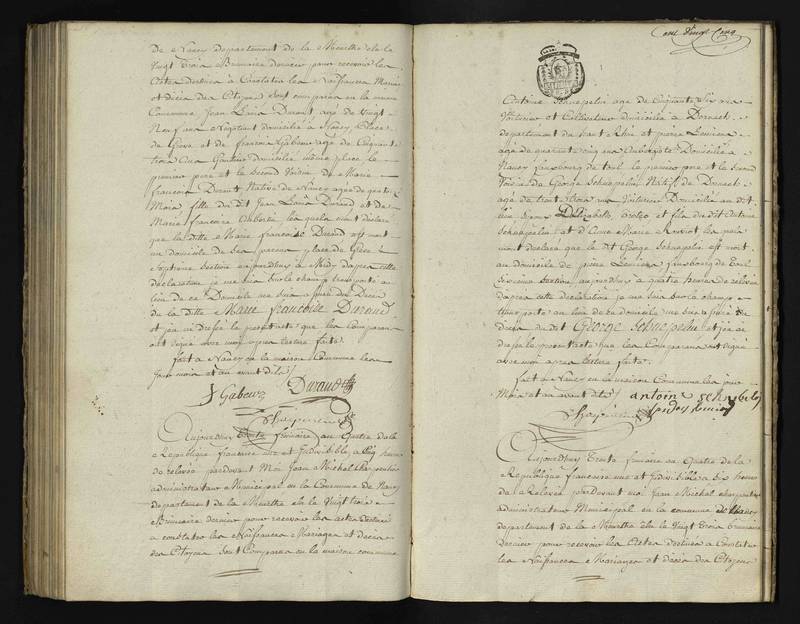 de Nancy département de la Meurthe élu le
Vingt Trois Brumaire dernier pour recevoir les
Actes destinés à Constater les Naissances Mariages
et décès des Citoyens Sont comparus en la maison
Commune Jean Louis Durand agé de Vingt
Neuf ans Négotiant domicilié à Nancy, Place
de Grève et de francois Gabeur agé de Cinquante
trois Ans domicilié même place le
premier pere et le Second Voisin de Marie
francoise Durand Native de Nancy agée de quatre
Mois fille du dit Jean Louis Durand et de
Marie francoise les quels m'ont déclaré
que la ditte Marie francoise Durand est morte
au domicile de Ses parens place de Grève
Septieme Section aujourdhuy à Midy dapres cette
déclaration je me suis Sur le champ transporté au
lieu de ce Domicile me suis assuré du Décès
de la ditte Marie francoise Durand
et j'en ai Dressé le présent acte que les Comparans
ont signé avec moy après lecture faite
fait à Nancy en la maison Commune les
Jour mois et an avant dits
J Gabeur Durand
Charpentier
Aujourdhuy Trente frimaire an Quatre de la
République francaise une et Indivisible à Cinq heures
de relevée pardevant Moi Jean Michel Charpentier
administrateur Municipal en la Commune de Nancy
département de la Meurthe élu le Vingt trois
Brumaire dernier pour recevoir les actes destinés
a constater les Naissances Mariages et décès
des Citoyens Sont Comparus en la maison commune
Cent Vingt Cinq
Antoine Schnepelin agé de Cinquante Six ans
Voiturier et Cultivateur domicilié à Dornach
département du haut Rhin et pierre Lemieux
agé de quarante cinq ans Aubergiste Domicilié a
Nancy fauxbourg de toul le premier pere et le Second
Voisin de George Schnepelin Natif de Dornach
agé de trente trois ans Voiturier Domicilié au dit
lieu Epoux Elizabeth et fils du dit Antoine
Schnepelin et d'Anne Marie les quels
mont déclaré que le dit George Schnepelin est mort
au domicile de pierre Lemieux fauxbourg de Toul
Sixieme Section aujourdhuy à quatre heures de relevée
dapres cette déclaration je me suis sur le champ
transporté au lieu de ce domicile me suis assuré du
Décès du dit George Schnepelin et j'en ai
dressé le présent acte que les Comparans ont signé
avec moi apres lecture faite
fait à Nancy en la maison Commune les jour
Mois et an avant dits antoine schnebelen
Charpentier
Aujourdhuy Trente frimaire an Quatre de la
République francaise une et Indivisible à Six heures
de Relevée pardevant moi Jean Michel charpentier
administrateur Municipal en la commune de Nancy
département de la Meurthe élu le Vingt Trois Brumaire
Dernier pour recevoir les Actes destinés à Constater
les Naissances Mariages et décès des Citoyens